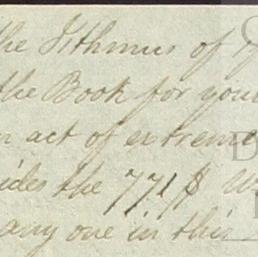 the Isthmus of
the Book for you
n act of extreme
ides the 771$
any one in this